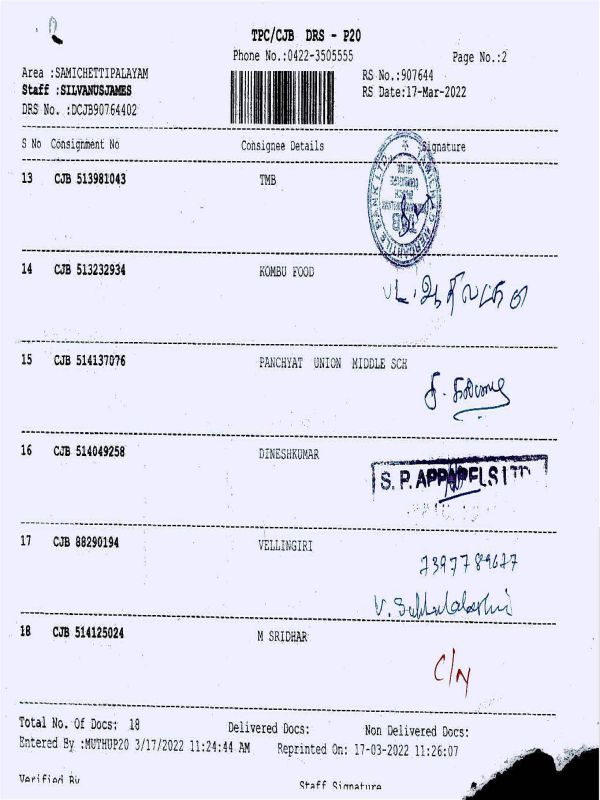 TPC/CJB DRS - P20
Phone No.:0422-3505555
Page No.:2
Area :SAMICHETTIPALAYAM
RS No.:907644
Staff :SILVANUSJAMES
RS Date:17-Mar-2022
DRS No. :DCJB90764402
S No Consignment No Consignee Details Signature
13 CJB 513981043 TMB
14 CJB 513232934 KOMBU FOOD
15 CJB 514137076 PANCHYAT UNION MIDDLE SCH
16 CJB 514049258 DINESHKUMAR
S.P. APPARELS LTD
17 CJB 88290194 VELLINGIRI
18 CJB 514125024 M SRIDHAR
C/N
Total No. Of Docs: 18 Delivered Docs: Non Delivered Docs:
Entered By :MUTHUP20 3/17/2022 11:24:44 AM Reprinted On: 17-03-2022 11:26:07
Verified By Staff Signature